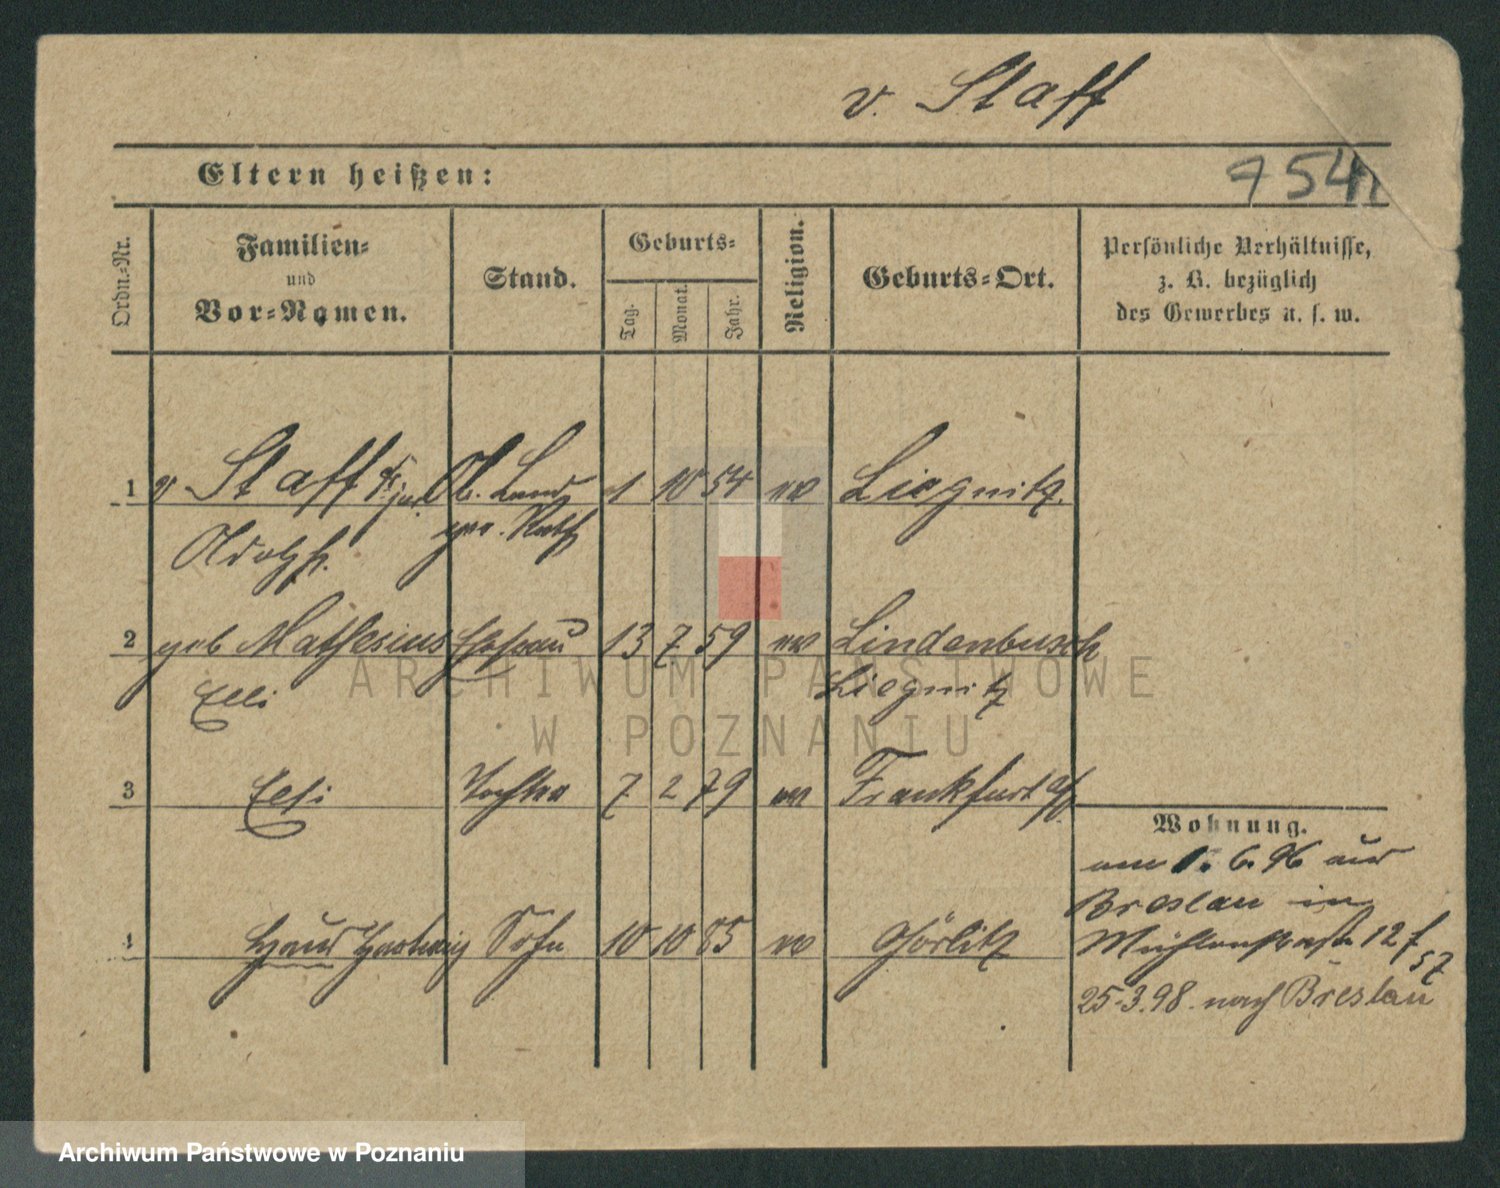 v. Staff
Eltern heißen:
7541
Ordn.-Nr.
Familien-
und
Vor-Namen.
Stand.
Geburts-
Tag.
Monat.
Jahr.
Religion.
Geburts-Ort.
Persönliche Verhältnisse,
z. B. bezüglich
des Gewerbes u. s. w.
1 v Staff Dr jur. Ob. Land 1 10 54 ev Liegnitz.
Adolph. ger. Rath
2 geb Mathesius Ehefrau 13 7 59 ev Lindenbusch
Elli Liegnitz
3 Elsi Tochter 7 2 79 ev Frankfurt
Wohnung.
am 1. 6. 96 aus
Breslau in
4 Hans Hartwig Sohn 10 10 85 ev Görlitz
Mühlenstraße 12 f
57
25.3.98. nach Breslau
ARCHIWUM PAŃSTWOWE
W POZNANIU
Archiwum Państwowe w Poznaniu